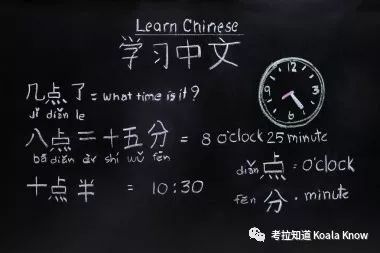 Learn Chinese
学习中文
几点了 = what time is it?
jǐ diǎn le
八点二十五分 = 8 o'clock 25 minute
bā diǎn èr shí wǔ fēn
diǎn 点 = o'clock
十点半 = 10:30
fēn 分 . minute
考拉知道 Koala Know